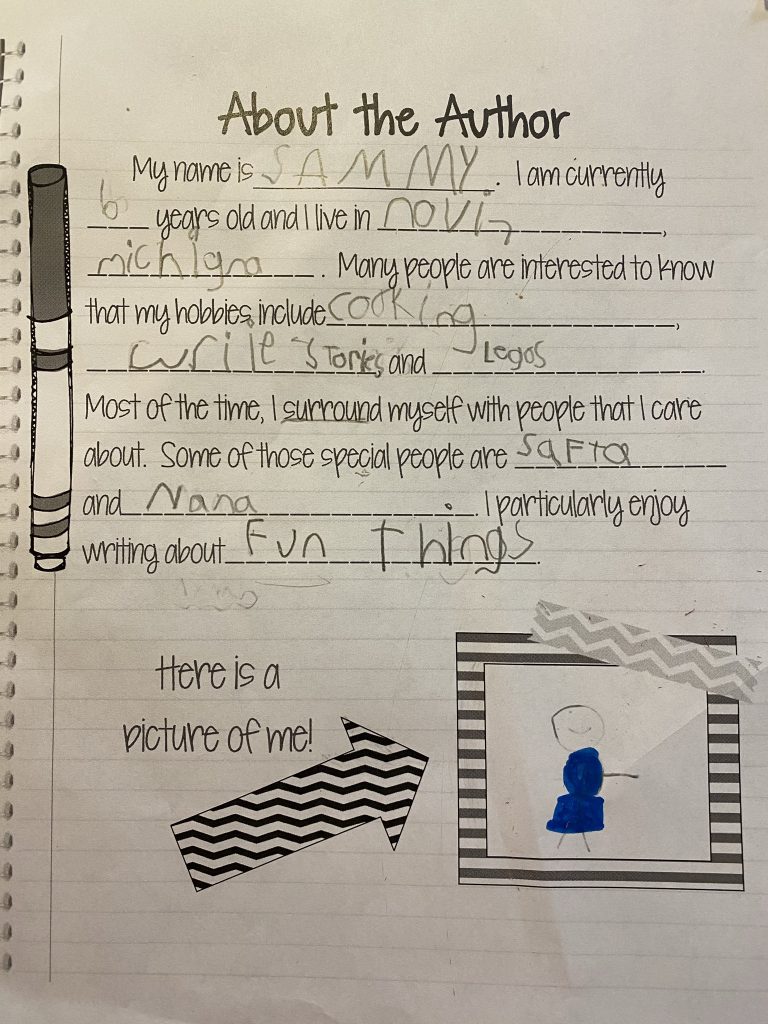 About the Author
My name is SAMMY. I am currently
6 years old and I live in novi,
michigna. Many people are interested to know
that my hobbies include cooking,
write stories and Legos.
Most of the time, I surround myself with people that I care
about. Some of those special people are safta
and Nana. I particularly enjoy
writing about Fun Things.
Here is a
picture of me!